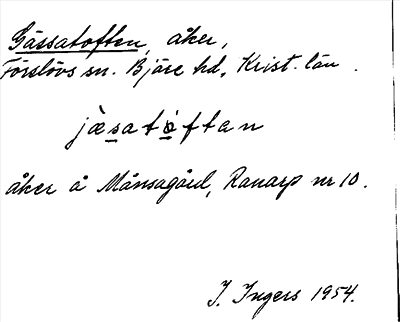 Gässatoften, åker,
Förslövs sn. Bjäre hd, Krist. län.
jæ̀satɵ̀ftan
åker å Månsagård, Ranarp nr 10.
I. Ingers 1954.